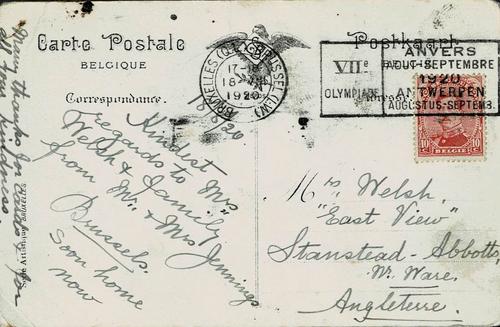 Carte Postale
BELGIQUE
Postkaart
Correspondance.
BRUXELLES (Q.L.) BRUSSEL (L.W.)
1920
VIIe
OLYMPIADE
ANVERS
AOUT-SEPTEMBRE
1920
ANTWERPEN
AUGUSTUS-SEPTEMB.
10 BELGIE 10
18/8/20
Kindest
regards to Mrs
Welsh & family
from Mr. & Mrs Jennings
Brussels.
Soon home
now
Many thanks for cards & for
all your kindness
BRUXELLES
Mrs Welsh,
"East View"
Stanstead-Abbotts,
Nr. Ware.
Angleterre.